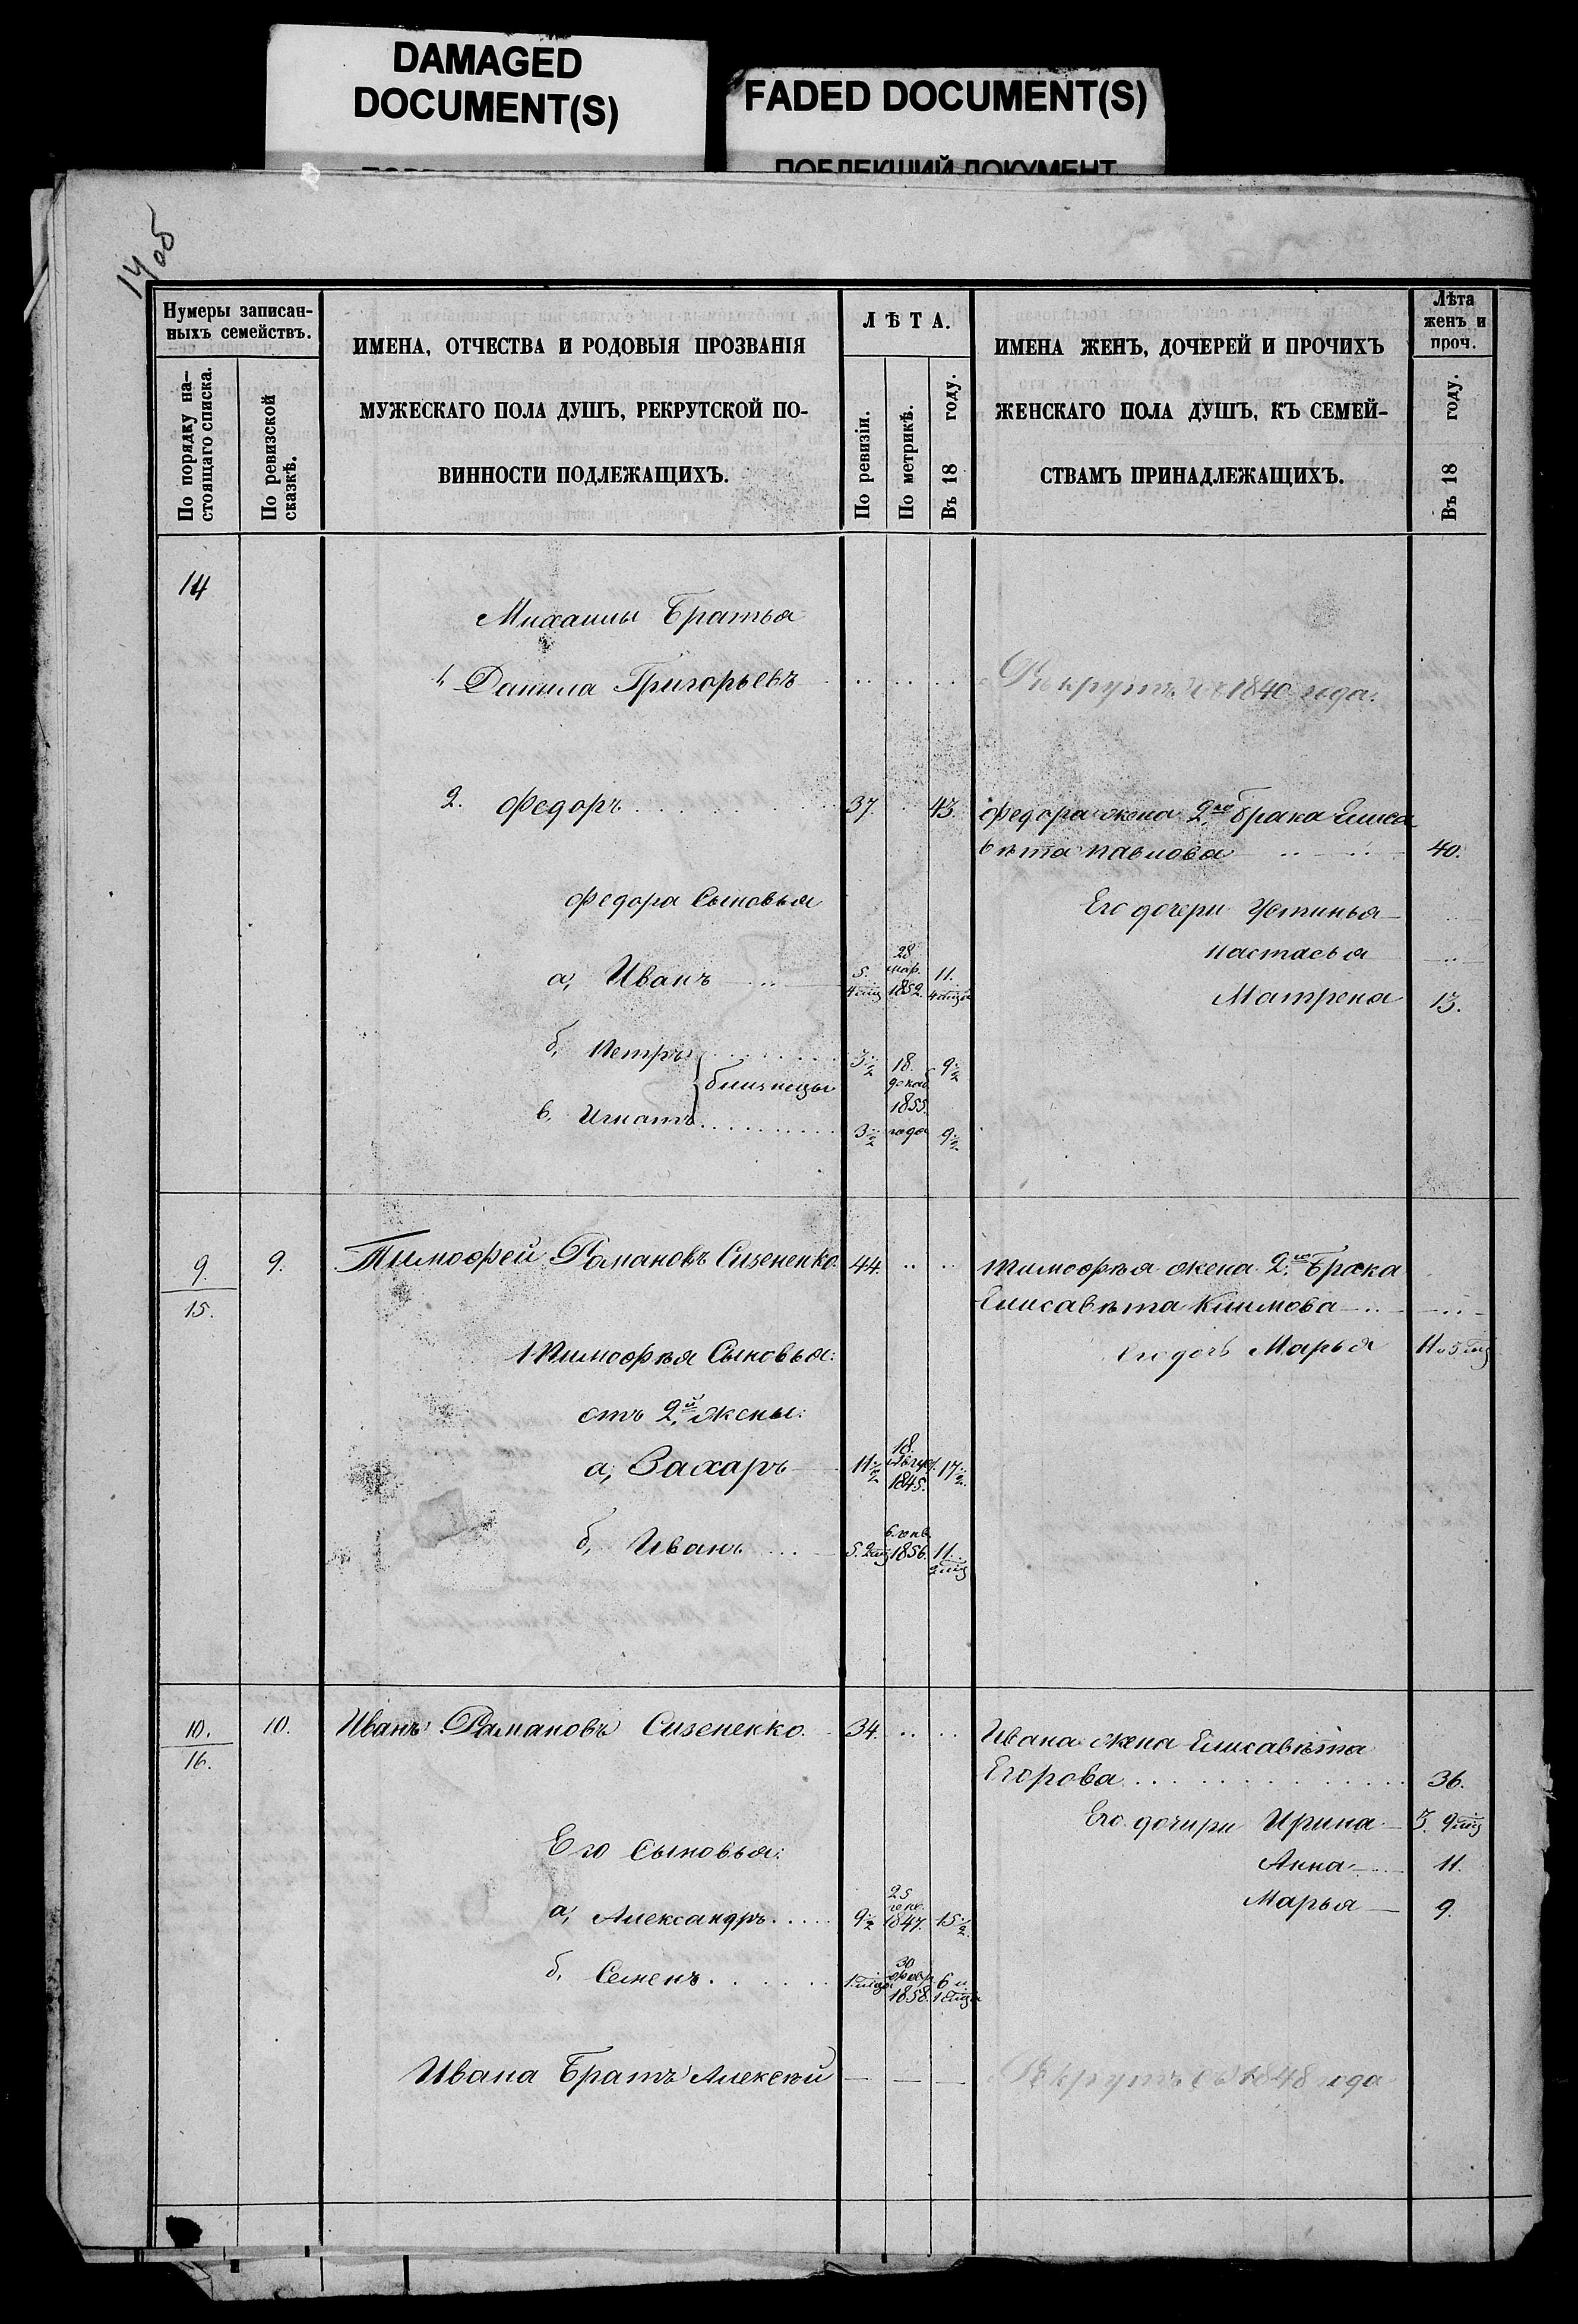 DAMAGED
DOCUMENT(S)
FADED DOCUMENT(S)
ПОБЛЕКШИЙ ДОКУМЕНТ
14 об
Нумеры записан-
ныхъ семействъ.
По порядку на-
стоящаго списка.
По ревизской
сказкѣ.
ИМЕНА, ОТЧЕСТВА И РОДОВЫЯ ПРОЗВАНІЯ
МУЖЕСКАГО ПОЛА ДУШЪ, РЕКРУТСКОЙ ПО-
ВИННОСТИ ПОДЛЕЖАЩИХЪ.
ЛѢТА.
По ревизіи.
По метрикѣ.
Въ 18 году.
ИМЕНА ЖЕНЪ, ДОЧЕРЕЙ И ПРОЧИХЪ
ЖЕНСКАГО ПОЛА ДУШЪ, КЪ СЕМЕЙ-
СТВАМЪ ПРИНАДЛЕЖАЩИХЪ.
Лѣта
женъ и
проч.
Въ 18 году.
14
Михаилы Братья
1. Данила Григорьевъ
Рекрутъ 1840 года.
2. Федоръ 37. 43.
Федора жена 2го брака Елиса
вѣта Павлова 40.
Федора Сыновья
Его дочери Устинья
Настасья
а, Иванъ 5. 4 мц 28 мар. 1852. 11. 4 мца
Матрена 13.
б, Петръ 3½ 18. декаб 1855. года 9½
близнецы
в, Игнатъ 3½ 9½
9. 15. 9. Тимофей Рамановъ Сизененко. 44.
Тимофѣя жена 2го Брака
Елисавѣта Климова
Тимофѣя Сыновья:
его дочь Марья 11 и 5 мц
отъ 2й жены:
а, Захаръ 11½ 18. август. 1845. 17½.
б, Иванъ 5. 2 мц 6. янв. 1856. 11. 2 мц
10. 16. 10. Иванъ Рамановъ Сизененко. 34.
Ивана жена Елисавѣта
Егорова 36.
Его дочири Ирина 3. 9 мц
Его Сыновья:
Анна 11.
а, Александръ 9½ 25 генв. 1847. 15½.
Марья 9.
б, Семенъ 1 мця 30 февр. 1858. 6 и 1 мця
Ивана Братъ Алексѣй
Рекрутъ съ 1848 года